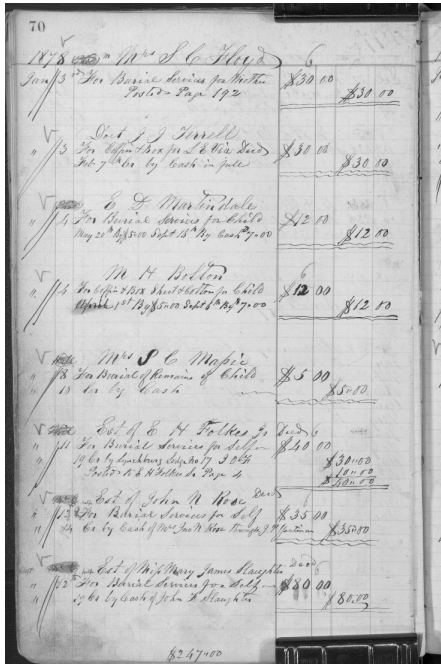 70
1878 Mrs S C Floyd 6
Jan 3rd For Burial Services for Mother $30 00
Posted Page 192 $30 00
Doct J J Terrell
" 3 For Coffin & Box for L E Via Decd $30 00
Feb 7th Cr by Cash in full $30 00
E D Martindale
" 4 For Burial Services for Child $12 00
May 20th By $5 00 Sept 15th By Cash 7 00 $12 00
M H Bolton 6
" 4 For Coffin & Box Sheet & Cotton for Child $12 00
April 1st By $5 00 Sept 8th By $7 00 $12 00
Mrs S C Mapie
" 8 For Burial of Remains of Child $5 00
" 10 Cr by Cash $5 00
Est of E H Folkes Jr Decd 6
" 11 For Burial Services for Self $40 00
" 19 Cr by Lynchburg Lodge No 17 I O F $30 00
Posted to E H Folkes Sr Page 4 10 00
$40 00
Est of John N Rose Decd
" 13 For Burial Services for Self $35 00
" 24 Cr by Cash of Mrs Jno N Rose through J P $35 00
Est of Miss Mary James Slaughter Decd 6
" 12 For Burial Services for Self $80 00
" 19 Cr by Cash of John F Slaughter $80 00
$247 00